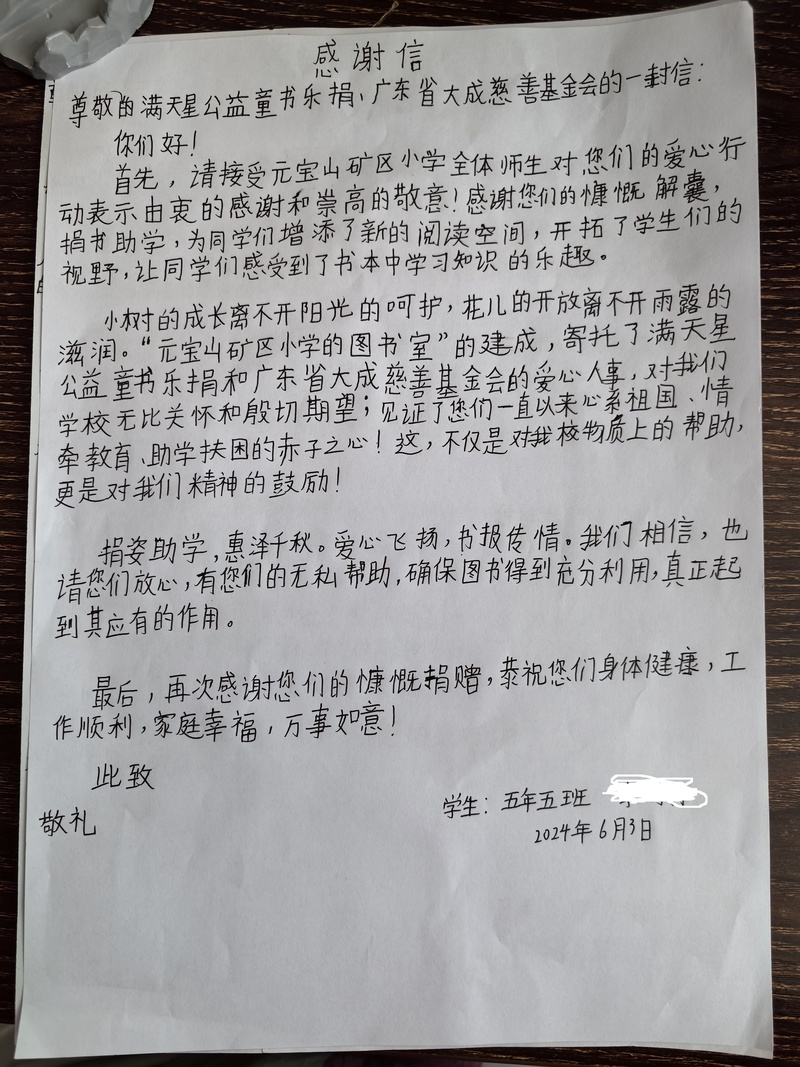 感谢信
尊敬的满天星公益童书乐捐、广东省大成慈善基金会的一封信：
你们好！
首先，请接受元宝山矿区小学全体师生对您们的爱心行
动表示由衷的感谢和崇高的敬意！感谢您们的慷慨解囊，
捐书助学，为同学们增添了新的阅读空间，开拓了学生们的
视野，让同学们感受到了书本中学习知识的乐趣。
小树的成长离不开阳光的呵护，花儿的开放离不开雨露的
滋润。“元宝山矿区小学的图书室”的建成，寄托了满天星
公益童书乐捐和广东省大成慈善基金会的爱心人事，对我们
学校无比关怀和殷切期望；见证了您们一直以来心系祖国、情
牵教育、助学扶困的赤子之心！这，不仅是对我校物质上的帮助，
更是对我们精神的鼓励！
捐姿助学，惠泽千秋。爱心飞扬，书报传情。我们相信，也
请您们放心，有您们的无私帮助，确保图书得到充分利用，真正起
到其应有的作用。
最后，再次感谢您们的慷慨捐赠，恭祝您们身体健康，工
作顺利，家庭幸福，万事如意！
此致
敬礼
学生：五年五班
2024年6月3日